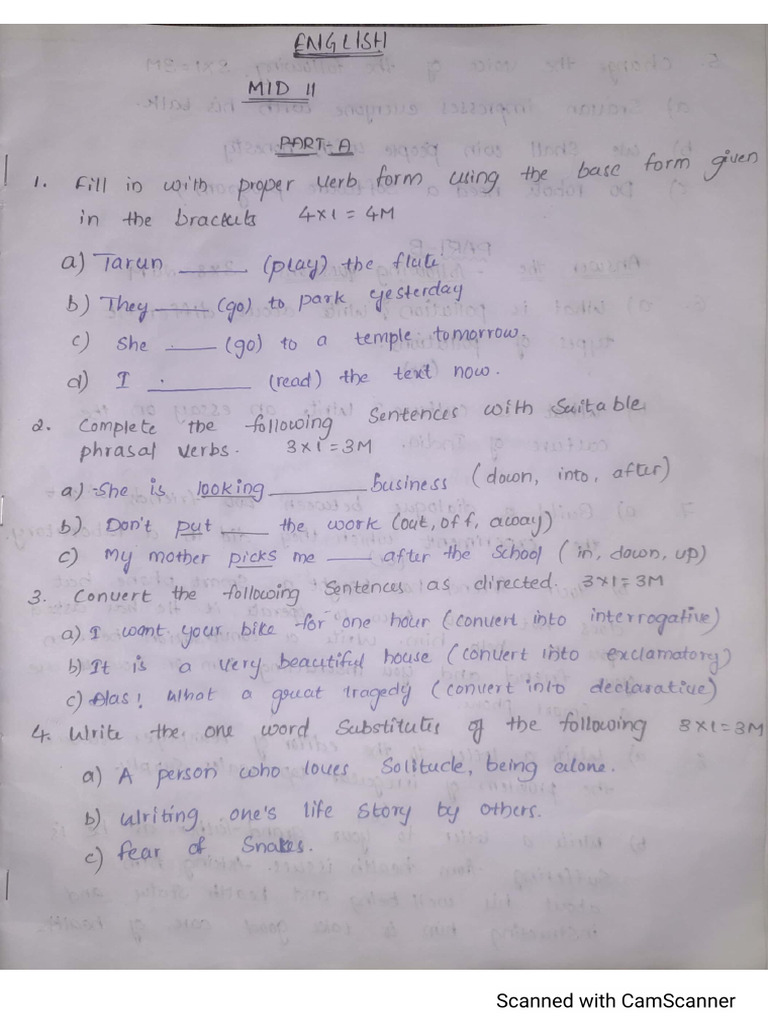 ENGLISH
MID II
PART-A
1. Fill in with proper verb form using the base form given
in the brackets 4x1=4M
a) Tarun ______ (play) the flute
b) They ______ (go) to park yesterday
c) She ______ (go) to a temple tomorrow.
d) I ______ (read) the text now.
2. Complete the following Sentences with Suitable
phrasal verbs. 3x1=3M
a) She is looking ______ business (down, into, after)
b) Don't put ______ the work (out, off, away)
c) My mother picks me ______ after the School (in, down, up)
3. Convert the following Sentences as directed. 3x1=3M
a) I want your bike for one hour (convert into interrogative)
b) It is a very beautiful house (convert into exclamatory)
c) Alas! What a great tragedy (convert into declarative)
4. Write the one word Substitutes of the following 3x1=3M
a) A person who loves Solitude, being alone.
b) Writing one's life Story by others.
c) fear of Snakes.
Scanned with CamScanner